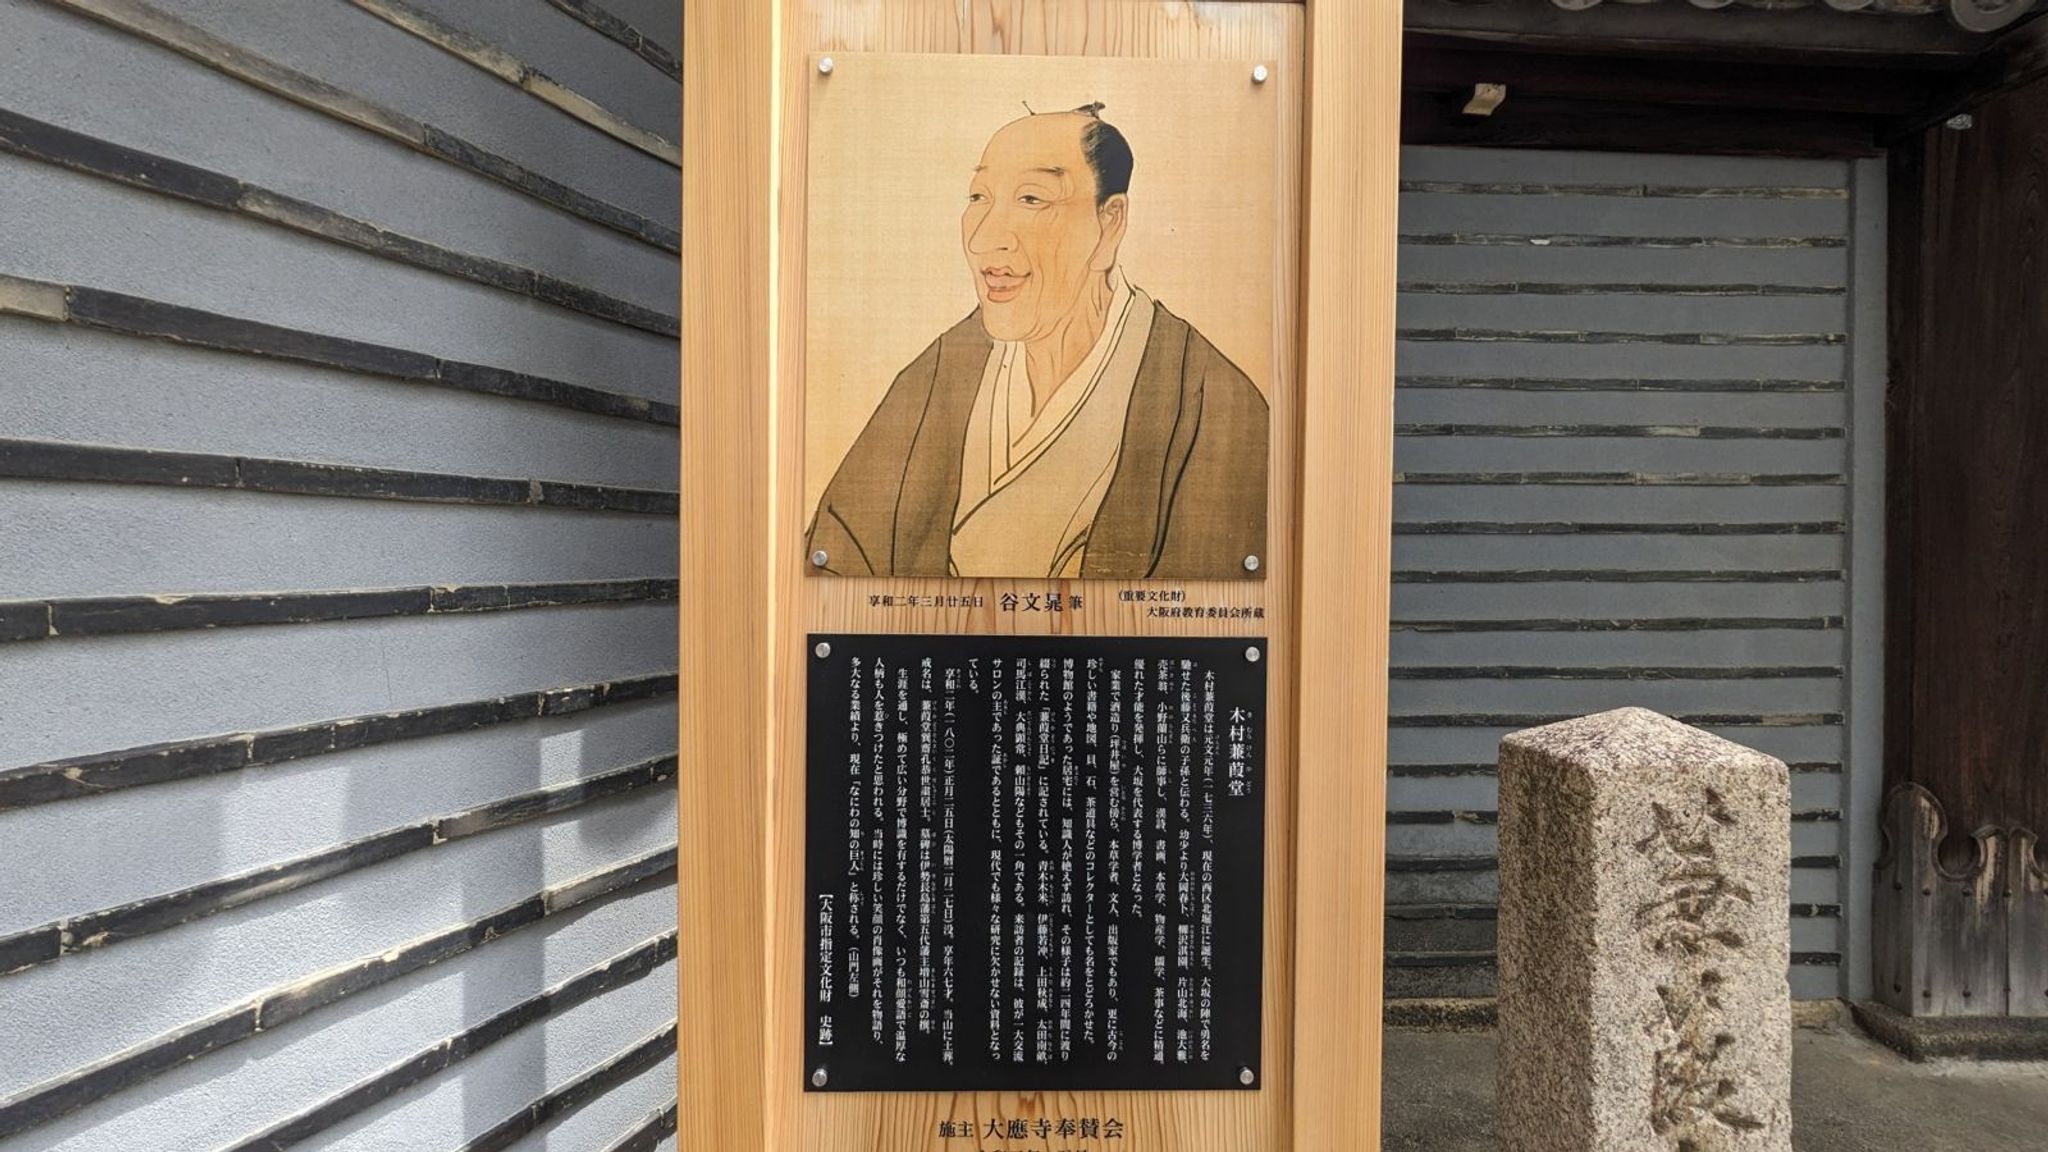 享和二年三月廿五日 谷文晁 筆
(重要文化財)
大阪府教育委員会所蔵
木村蒹葭堂
木村蒹葭堂は元文元年(一七三六年)、現在の西区北堀江に誕生。大坂の陣で勇名を
馳せた後藤又兵衛の子孫と伝わる。幼少より大岡春卜、柳沢淇園、片山北海、池大雅、
売茶翁、小野蘭山らに師事し、漢詩、書画、本草学、物産学、儒学、茶事などに精通、
優れた才能を発揮し、大坂を代表する博学者となった。
家業で酒造り(坪井屋)を営む傍ら、本草学者、文人、出版家でもあり、更に古今の
珍しい書籍や地図、貝、石、茶道具などのコレクターとしても名をとどろかせた。
博物館のようであった居宅には、知識人が絶えず訪れ、その様子は約二四年間に渡り
綴られた「蒹葭堂日記」に記されている。青木木米、伊藤若冲、上田秋成、太田南畝、
司馬江漢、大典顕常、頼山陽などもその一角である。来訪者の記録は、彼が一大交流
サロンの主であった証であるとともに、現代でも様々な研究に欠かせない資料となっ
ている。
享和二年(一八〇二年)正月二五日(太陽暦二月二七日)没。享年六七才。当山に土葬。
戒名は、蒹葭堂巽齋孔恭世粛居士。墓碑は伊勢長島藩第五代藩主増山雪斎の撰。
生涯を通し、極めて広い分野で博識を有するだけでなく、いつも和顔愛語で温厚な
人柄も人を惹きつけたと思われる。当時には珍しい笑顔の肖像画がそれを物語り、
多大なる業績より、現在「なにわの知の巨人」と称される。(山門左側)
【大阪市指定文化財 史跡】
施主 大應寺奉賛会